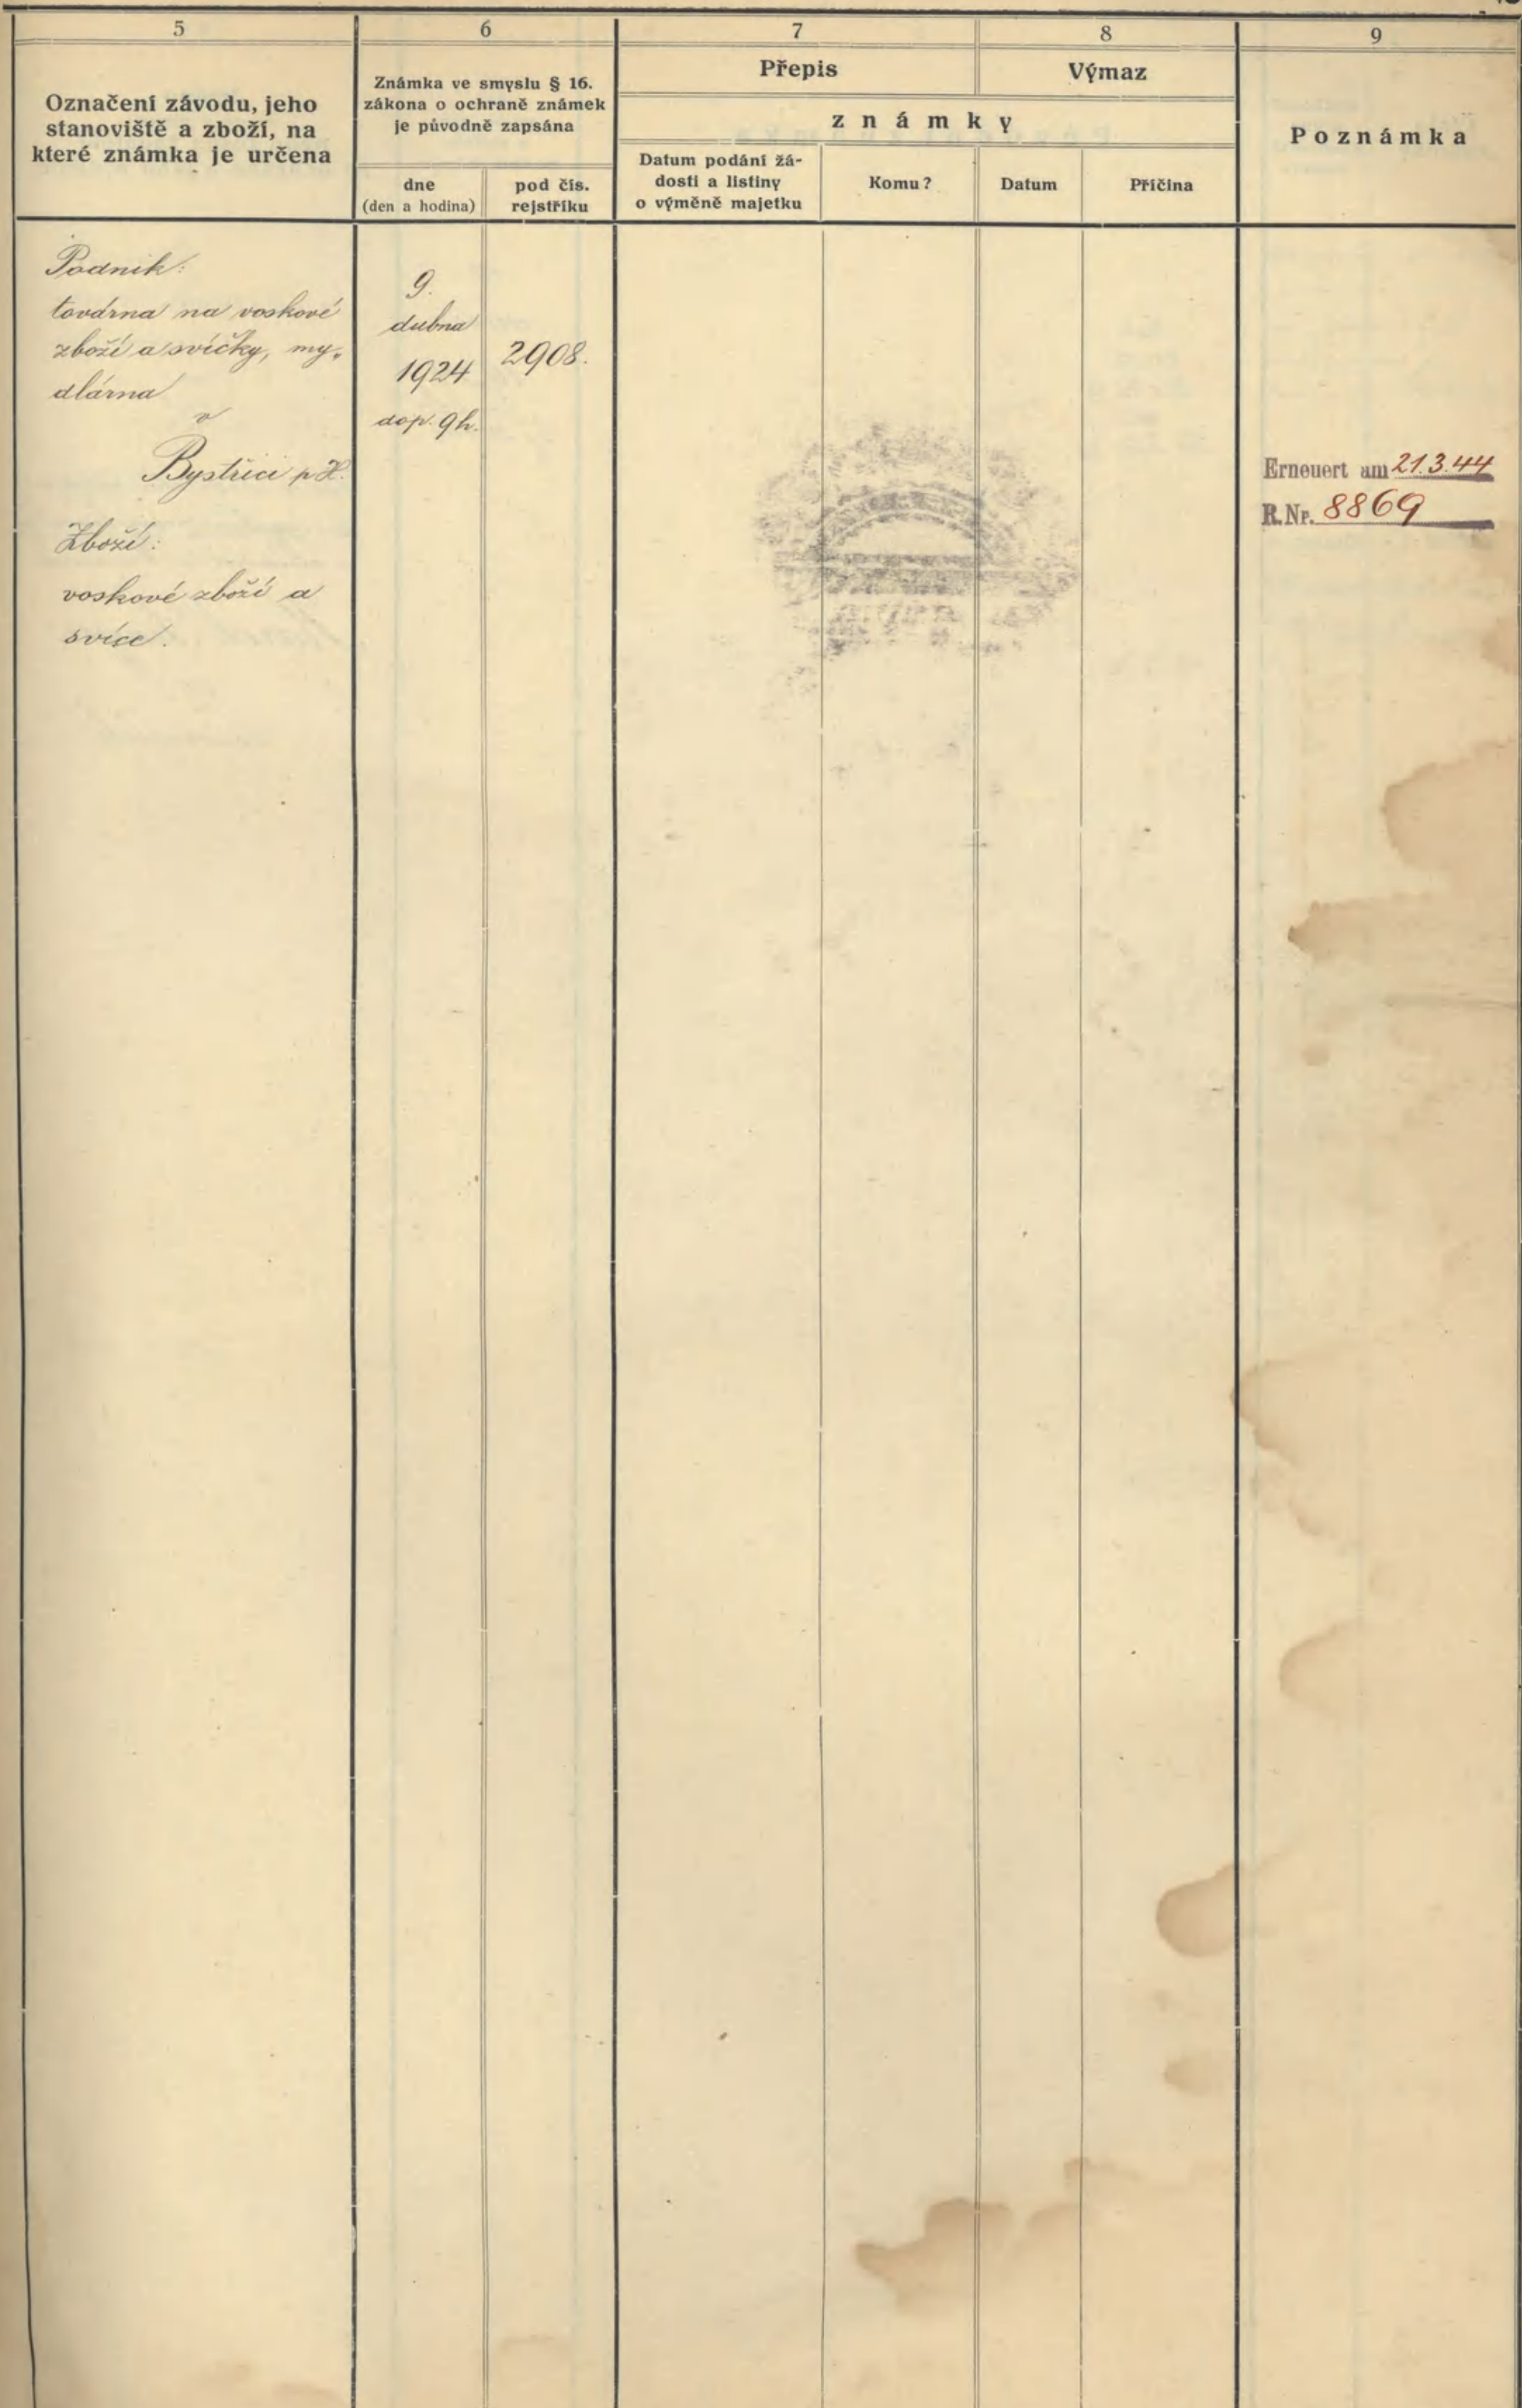 5
6
7
8
9
Označení závodu, jeho
stanoviště a zboží, na
které známka je určena
Známka ve smyslu § 16.
zákona o ochraně známek
je původně zapsána
dne
(den a hodina)
pod čís.
rejstříku
Přepis
Výmaz
známky
Datum podání žá-
dosti a listiny
o výměně majetku
Komu?
Datum
Příčina
Poznámka
Podnik:
továrna na voskové
zboží a svíčky, my„
dlárna
v
Bystřici p H.
Zboží:
voskové zboží a
svíce.
9.
dubna
1924
dop. 9h.
2908.
Erneuert am 21.3.44
R.Nr. 8869